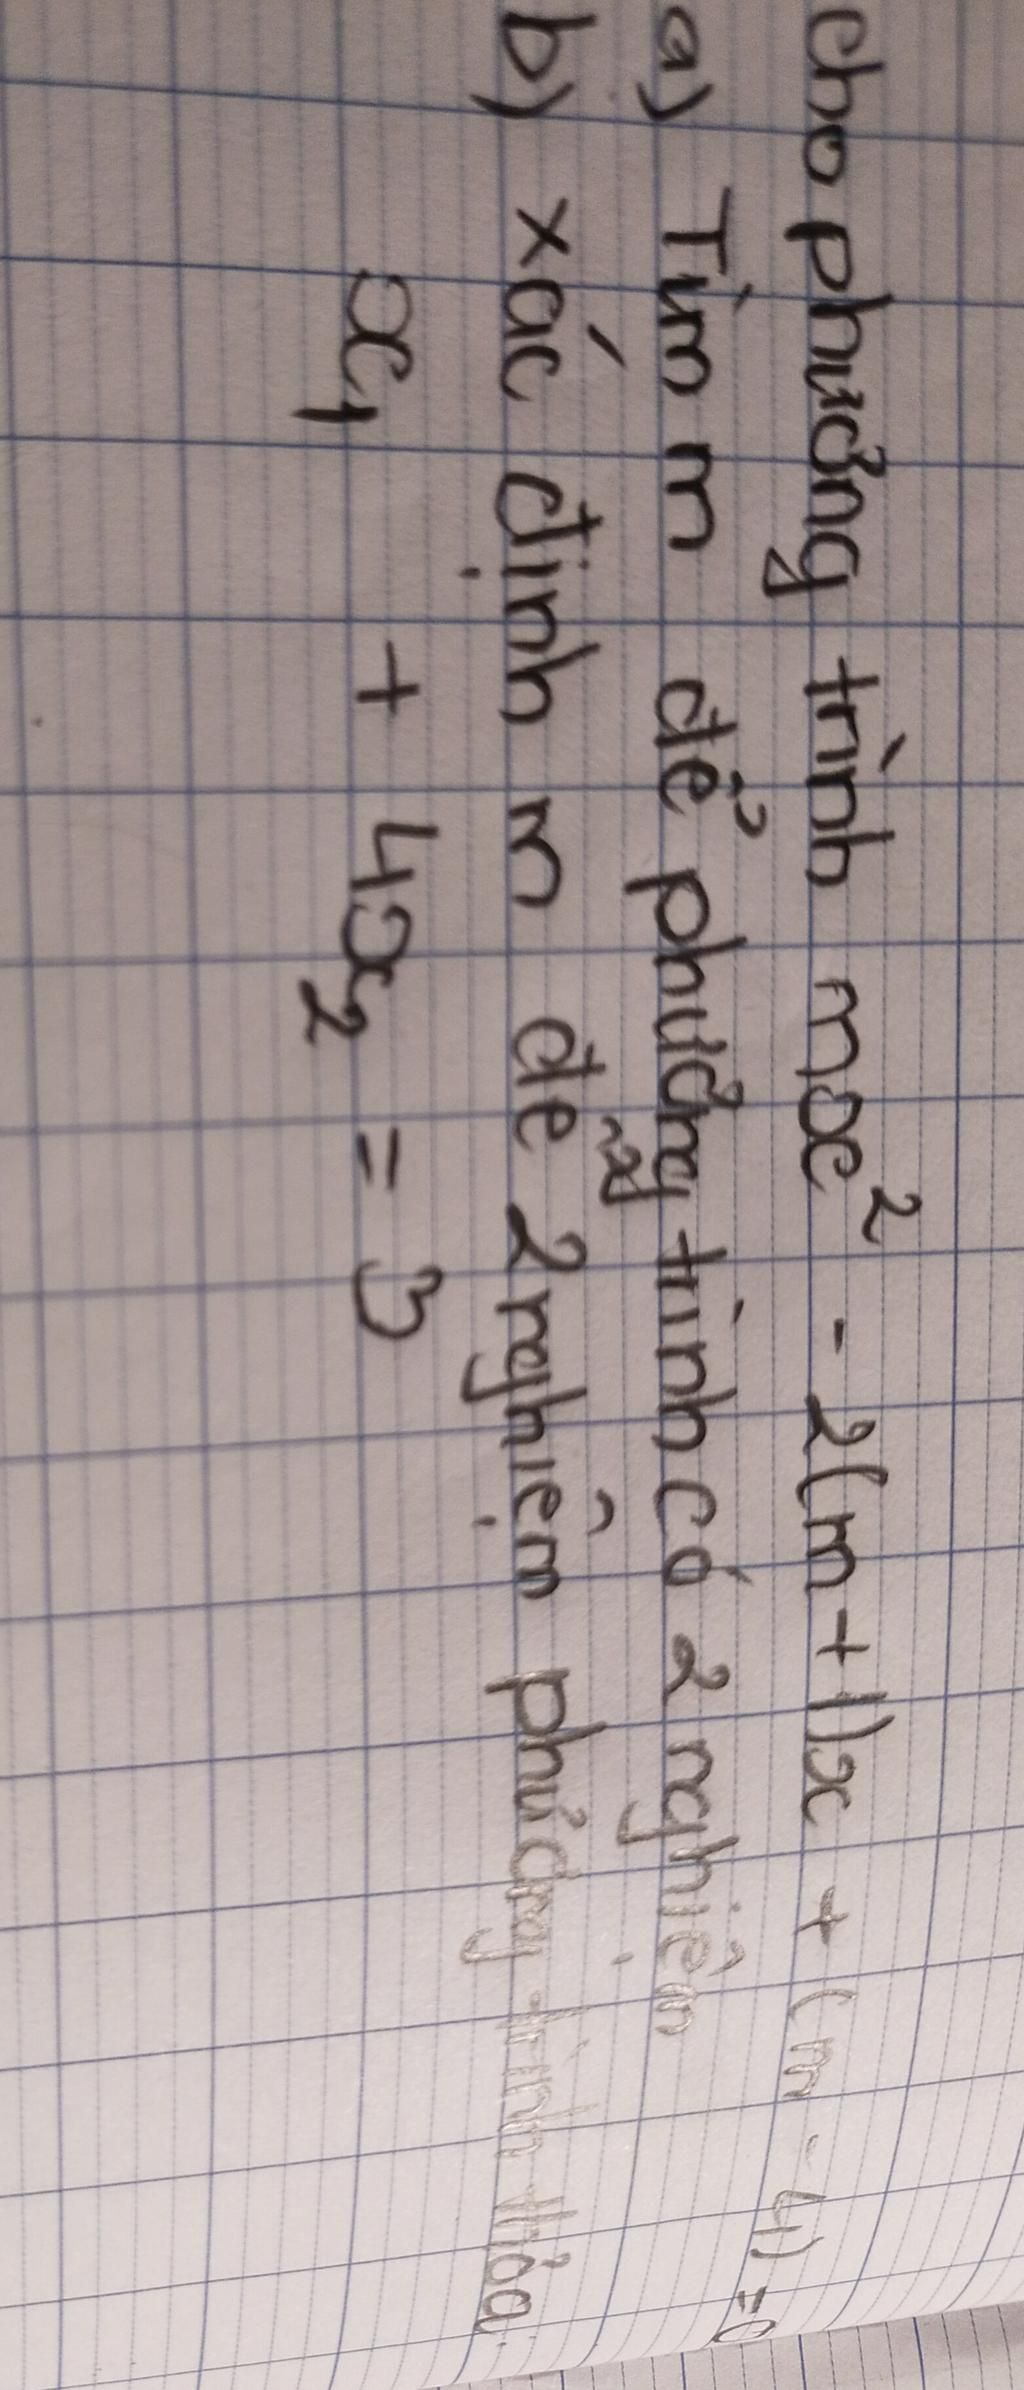 cho phương trình mx² - 2(m+1)x + (m - 4) = 0
a) Tìm m để phương trình có 2 nghiệm
b) xác định m để 2 nghiệm phương trình thỏa
x₁ + 4x₂ = 3